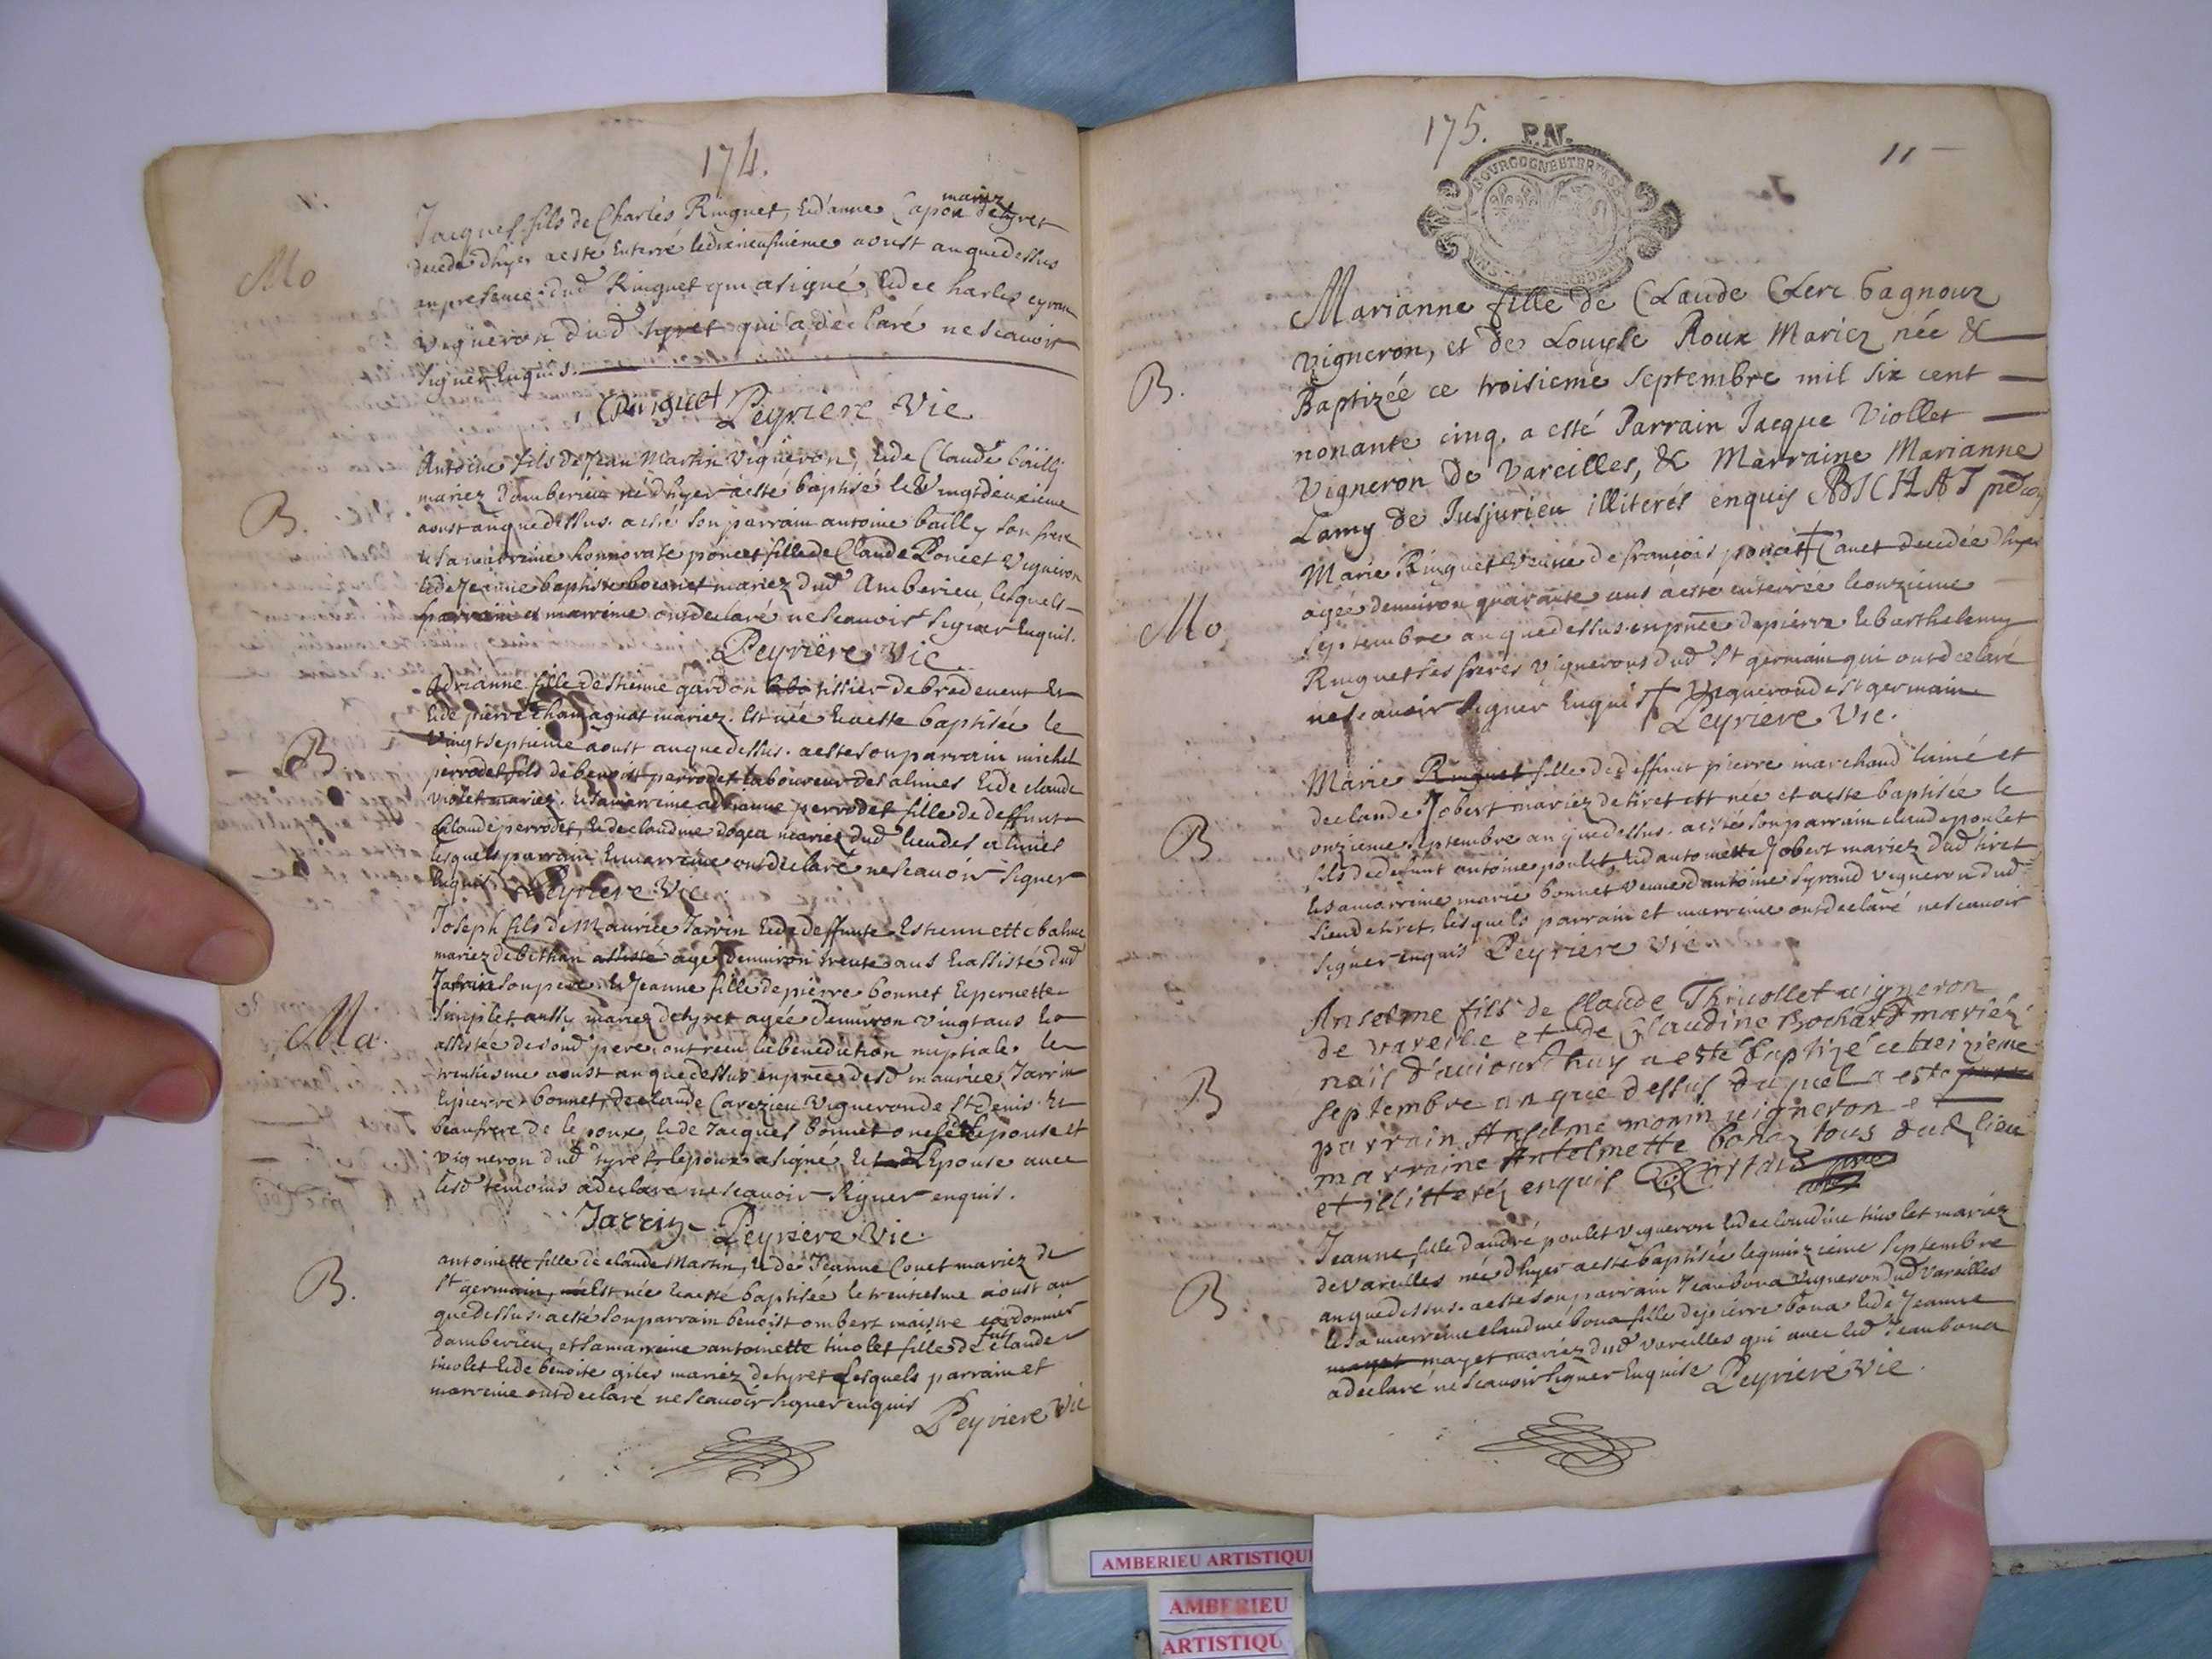 174.
Jacques fils de Charles Ringuet, et d'anne Capon mariez de tyret
decedé dhyer a esté enterré le dixneufvieme aoust an que dessus
en presence dud Ringuet qui a signé, et de Charles
vigneron dud tyret qui a déclaré ne scavoir
signer enquis.
Ringuet Peyriere Vic
Mo
Antoine fils de Jean Martin vigneron, et de Claude bailly
mariez d'amberieu né dhyer a esté baptisé le vingtdeuxieme
aoust an que dessus. a esté son parrain antoine bailly son frere
et sa marreine honnorate poncet fille de Claude Poncet vigneron
et de Jeanne baptiste bonnet mariez dud Amberieu, lesquels
parrain et marreine ont declaré ne scavoir signer enquis.
Peyriere Vic
B.
Adrianne fille destienne gardon tissier de bredevent et
et de pierre Chamagnat mariez. est née et a esté baptisée le
vingtseptieme aoust an que dessus. a esté son parrain michel
perrodet fils de benoist perrodet laboureur des alimes et de claude
violet mariez. et sa marreine adrianne perrodet fille de deffunt
Claude perrodet, et de claudine dogea mariez dud lieu des alimes
lesquels parrain et marreine ont declaré ne scavoir signer
enquis Peyriere Vic
B
Joseph fils de Maurice Jarrin et de deffunte Estiennette balme
mariez de bethan assisté agé denviron trente ans et assisté dud
Jarrin son pere. et Jeanne fille de pierre bonnet et pernette
simplet aussy mariez de tyret agée denviron vingt ans et
assistée de sond pere, ont receu la benediction nuptiale le
trentiesme aoust an que dessus en pnce desd maurice Jarrin
et pierre bonnet, de claude Carezieu vigneron de St denis et
beaufrere de lepoux, et de Jacques bonnet oncle de lepouse et
vigneron dud tyret, lepoux a signé, et lepouse avec
lesd temoins a declaré ne scavoir signer enquis.
Jarrin Peyriere Vic
Ma.
antoinette fille de claude Martin, et de Jeanne Couet mariez de
St germain, est née et a esté baptisée le trentiesme aoust an
que dessus. a esté son parrain benoist ombert maistre cordonnier
damberieu, et sa marreine antoinette tivolet fille de fut claude
tivolet et de benoite giles mariez de tyret lesquels parrain et
marreine ont declaré ne scavoir signer enquis
Peyriere Vic
B.
175.
P.N.
11
Marianne fille de Claude Clerc bagnouz
vigneron, et de Louyse Roux Mariez née &
Baptizée ce troisieme Septembre mil six cent
nonante cinq. a esté Parrain Jacque Viollet
Vigneron de Vareilles, & Marraine Marianne
Lamy de Jusjurieu illiterés enquis BICHAT
B.
Marie Ringuet veuve de françois poncet + Cauet decedée dhyer
agée denviron quarante ans a esté enterree le onzieme
septembre an que dessus. en pnce de pierre et barthelemy
Ringuet ses freres vignerons dud St germain qui ont declaré
ne scavoir signer enquis + vigneron de St germain
Peyriere Vic.
Mo
Marie Ringuet fille de deffunt pierre marchand lainé et
de claude Jobert mariez de tiret est née et a esté baptisée le
onzieme septembre an que dessus. a esté son parrain claude poulet
fils de defunt antoine poulet et dantoinette Jobert mariez dud tiret
et sa marreine marie bonnet veuve dantoine Syraud vigneron dud
lieu de tiret. lesquels parrain et marreine ont declaré ne scavoir
signer enquis Peyriere Vic
B
Anselme fils de Claude Thivollet vigneron
de vareille et de Claudine Bochard mariéz
nais d'auiourdhuy a esté baptizé ce treizieme
septembre an que dessus duquel a esté
parrain Anselme monin vigneron et
marraine Antelmette bonaz tous dud lieu
et illitteréz enquis
B
Jeanne fille dandré poulet vigneron et de claudine tivolet mariez
de vareilles née dhyer a esté baptisée le quinzieme septembre
an que dessus. a esté son parrain Jean bona vigneron dud vareilles
et sa marreine claudine bona fille de pierre bona et de Jeanne
mayet mayet mariez dud vareilles qui avec led Jean bona
a declaré ne scavoir signer enquise Peyriere Vic.
B
AMBERIEU ARTISTIQU
AMBERIEU
ARTISTIQU